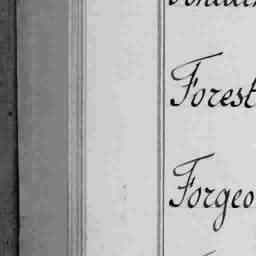 Forest
Forgeo